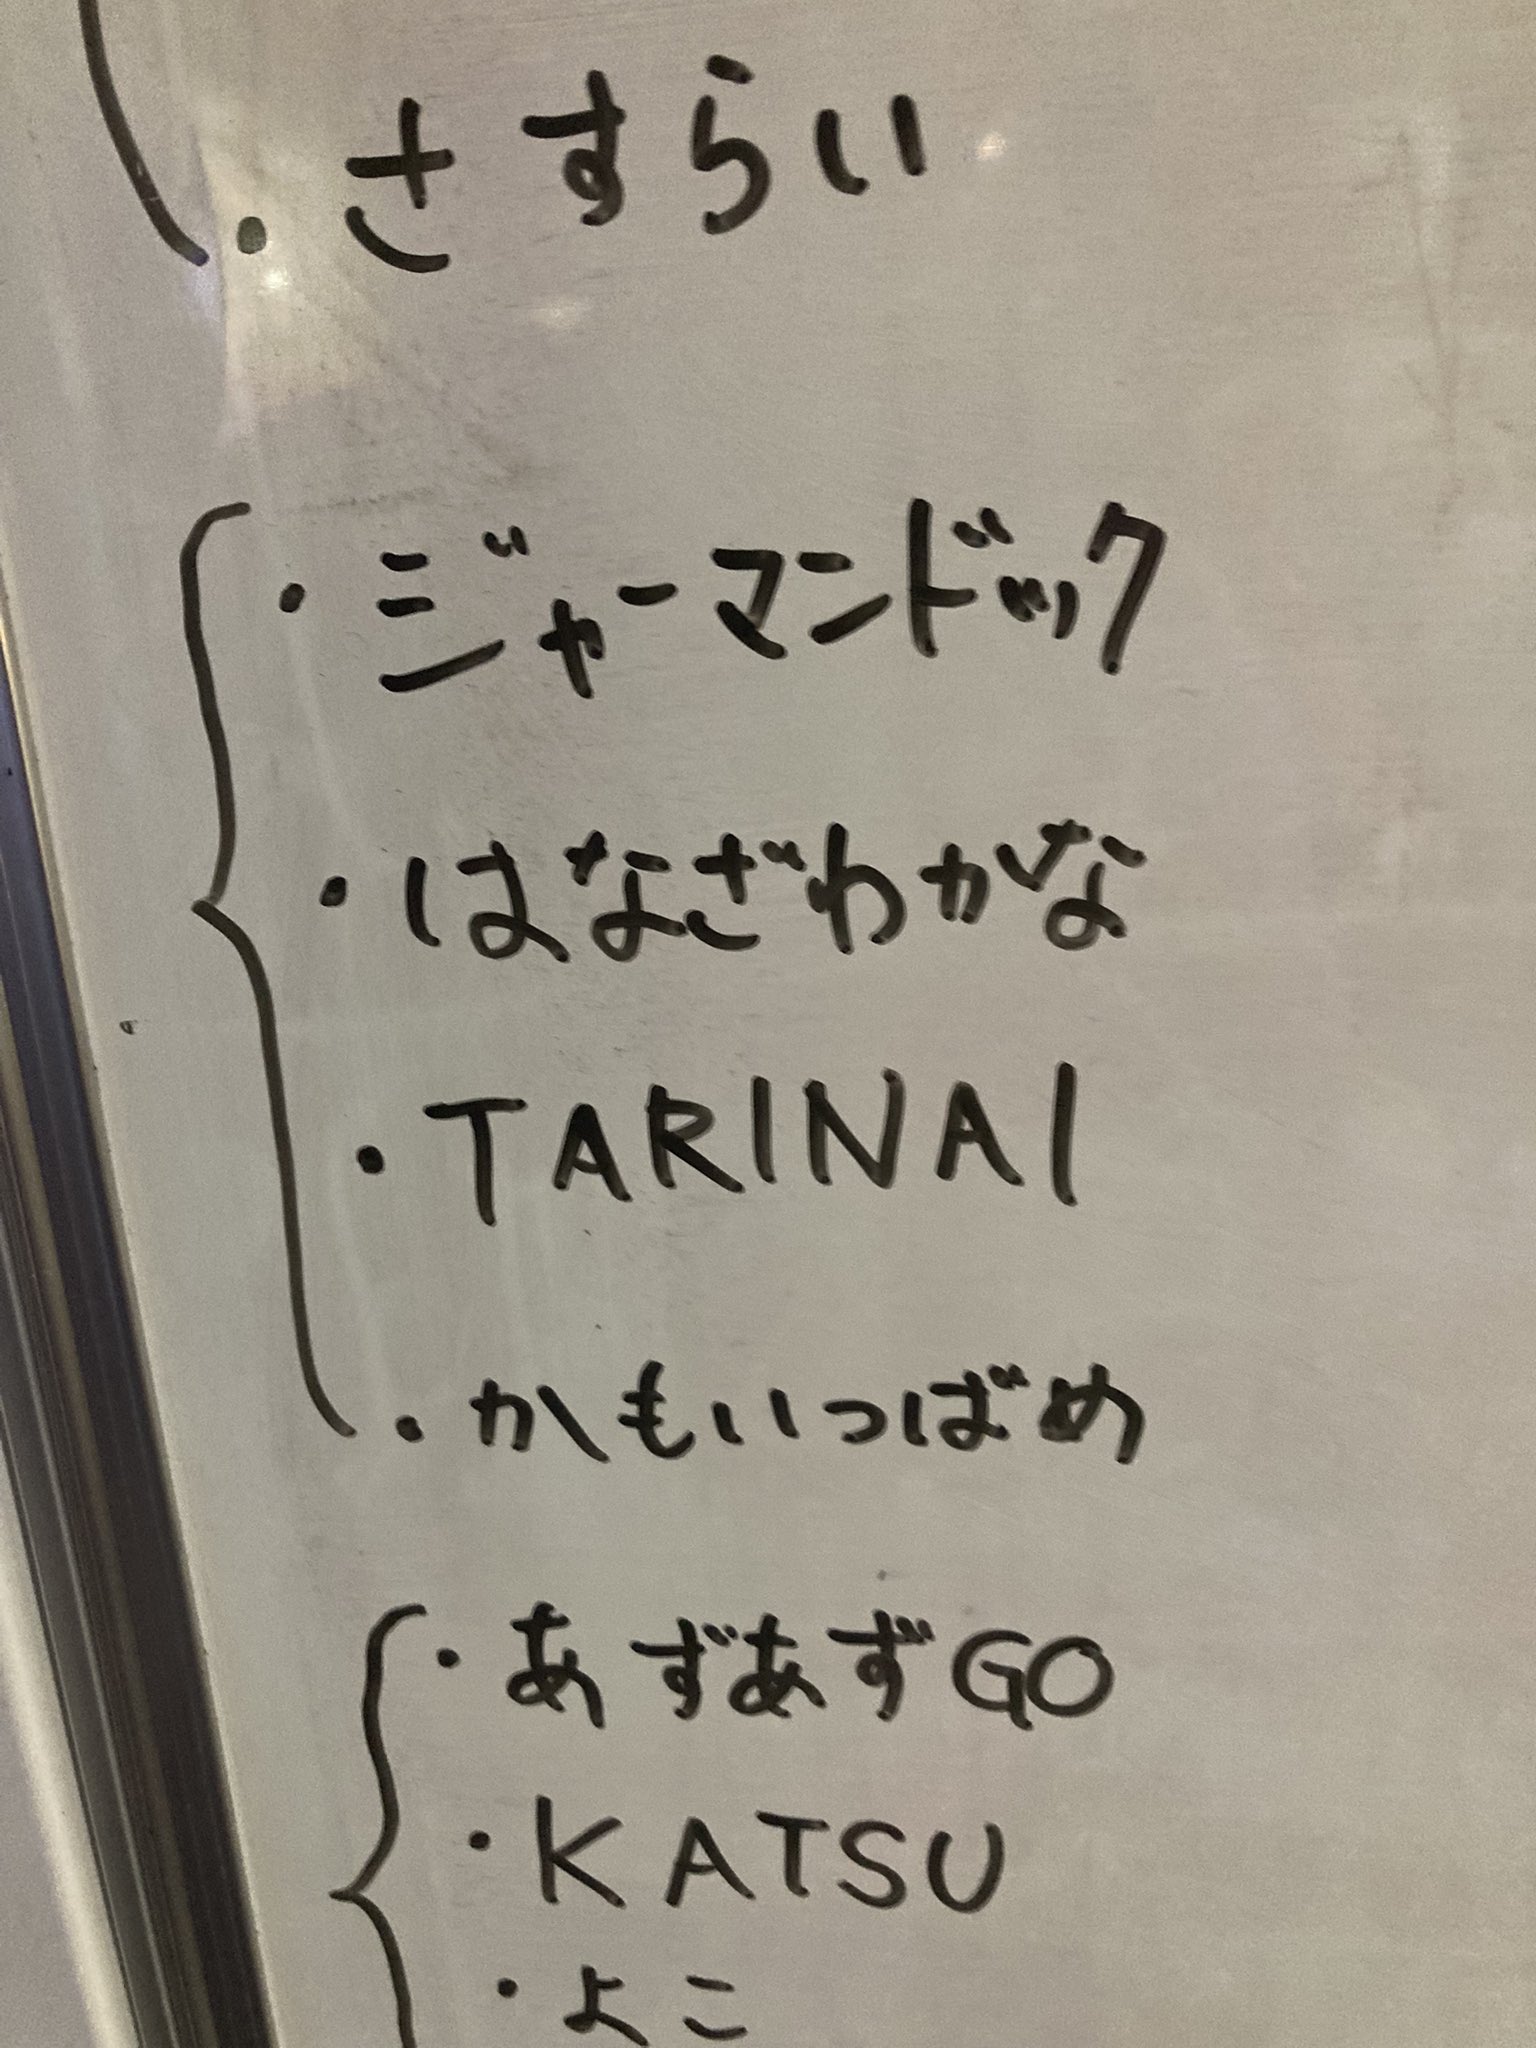 ・さすらい
・ジャーマンドック
・はなざわかな
・TARINAI
・かもいつばめ
・あずあずGO
・KATSU
・よこ